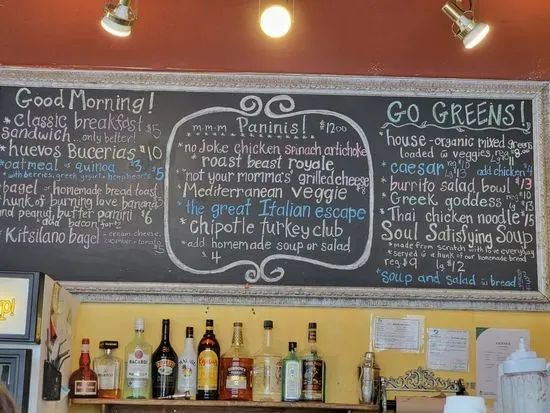 Good Morning!
*classic breakfast
sandwich ...only better! $5
*huevos Bucerias $10
*oatmeal or quinoa $3 $5
with berries, greek yogurt & hemp hearts
*bagel or homemade bread toast
*hunk of burning love banana
and peanut butter panini $6
add bacon for $2
*Kitsilano Bagel - cream cheese,
cucumber + tomato
m-m-m Paninis! $12.00
*no joke chicken spinach artichoke
*roast beast royale
*not your momma's grilled cheese $9
Mediterranean veggie
*the great Italian escape
*chipotle turkey club
*add homemade soup or salad
$4
GO GREENS!
*house-organic mixed greens
loaded w veggies reg $8
*caesar add chicken 4
*burrito salad bowl $13
Greek goddess
*Thai chicken noodle $15
Soul Satisfying Soup
*made from scratch with love everyday
*served w a hunk of our homemade bread
reg. $9 lg $12
*soup and salad w bread
BACARDI
MALIBU